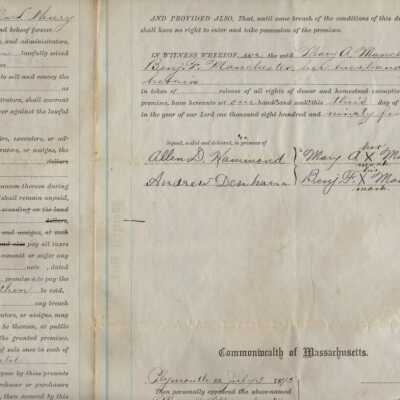 and behoof forever
and administrators,
lawfully seized
as
to sell and convey the
as
istrators, shall warrant
er against the lawful
utors, executors, or ad-
or assigns, the
dollars
annum thereon during
shall remain unpaid,
standing on the land
dollars,
and assigns, at such
and also pay all taxes
commit or suffer any
note , dated
promise to pay the
to said,
any breach
or assigns, may
be thereon, at public
the granted premises,
of sale once in each of
by these presents
purchaser or purchasers
then secured by this
AND PROVIDED ALSO, That, until some breach of the conditions of this de
shall have no right to enter and take possession of the premises.
IN WITNESS WHEREOF, we the said Mary A Manch
Benj. F. Manchester, her husband
in token of release of all rights of dower and homestead exemption
premises, have hereunto set our hands and this third day of
in the year of our Lord one thousand eight hundred and ninety
Signed, sealed and delivered, in presence of
her
Allen D. Hammond Mary A X Ma
mark
his
Andrew Denham Benj. F. X Ma
mark
Commonwealth of Massachusetts.
Plymouth ss July 3 1895
then personally appeared the above-named